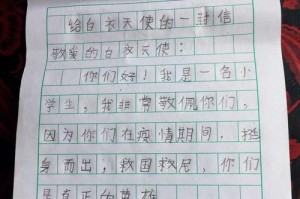 给白衣天使的一封信
敬爱的白衣天使：
你们好！我是一名小
学生，我非常敬佩你们，
因为你们在疫情期间，挺
身而出，救国救民，你们
是真正的英雄